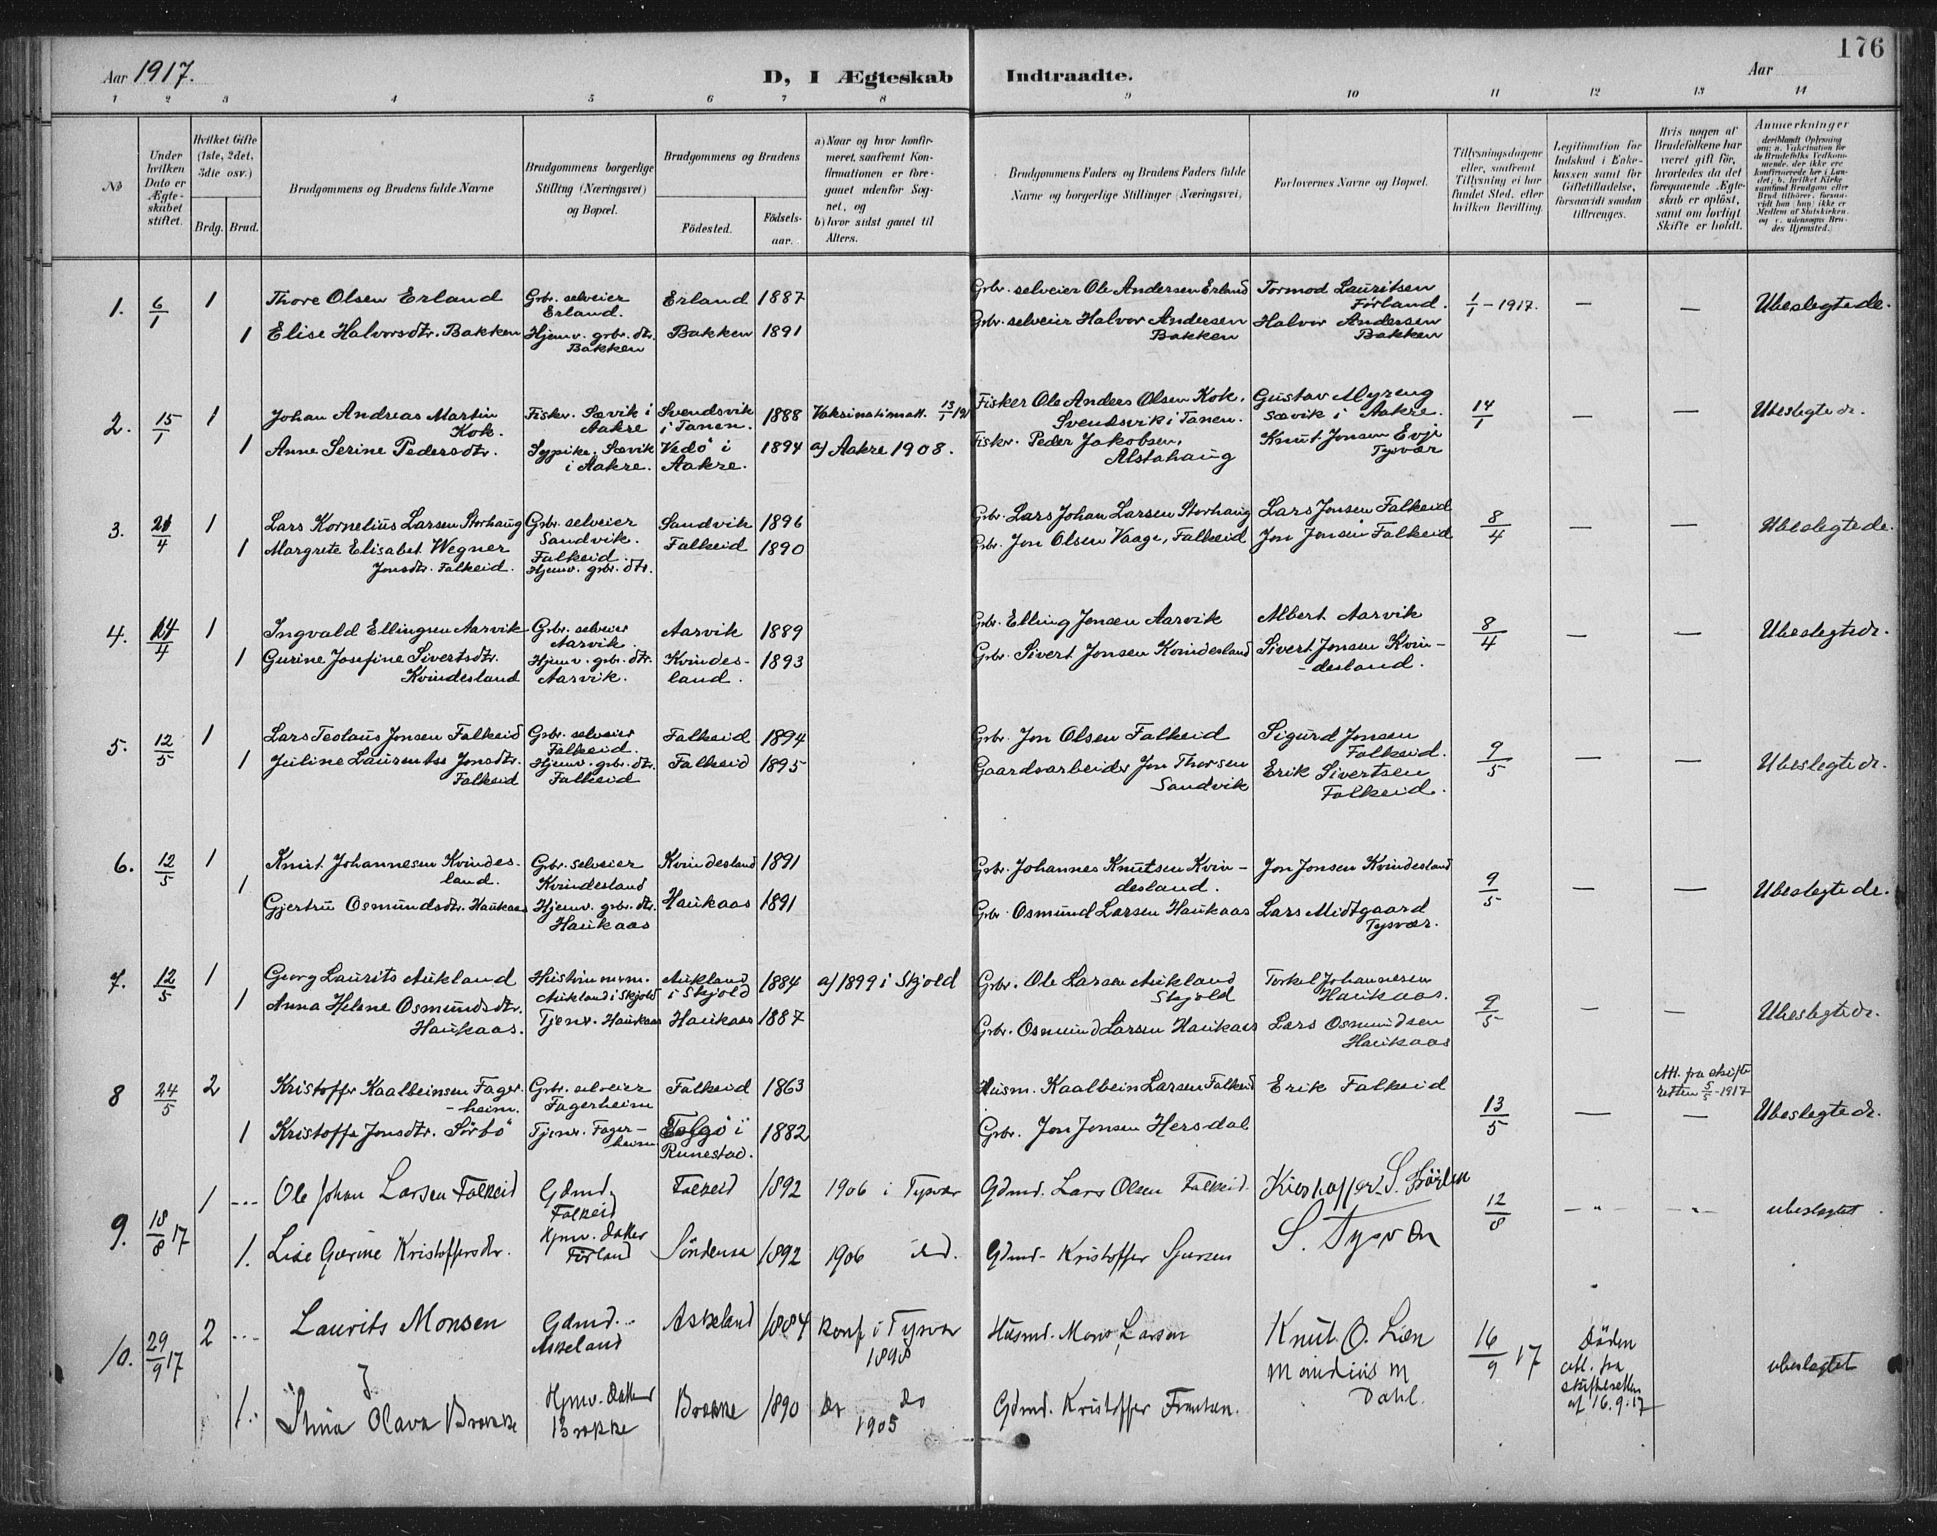 176
Aar 1917.
D, I Ægteskab Indtraadte.
Aar
1 2 3 4 5 6 7 8 9 10 11 12 13 14
No
Under hvilken Dato er Ægteskabet stiftet.
Hvilket Gifte (1ste, 2det, 3die osv.)
Brdg. Brud.
Brudgommens og Brudens fulde Navne
Brudgommens borgerlige Stilling (Næringsvei) og Bopæl.
Brudgommens og Brudens
Födested.
Födselsaar.
a) Naar og hvor konfirmeret, saafremt Konfirmationen er foregaaet udenfor Sognet, og
b) hvor sidst gaaet til Alters.
Brudgommens Faders og Brudens Faders fulde Navne og borgerlige Stillinger (Næringsvei)
Forlovernes Navne og Bopæl.
Tillysningsdagene eller, saafremt Tillysning ei har fundet Sted, efter hvilken Bevilling.
Legitimation for Indskud i Enkekassen samt for Giftetilladelse, forsaavidt saadan tiltrænges.
Hvis nogen af Brudefolkene har været gift før, hvorledes da det foregaaende Ægteskab er opløst, samt om lovligt Skifte er holdt.
Anmerkninger
1. 6/1 1 Thore Olsen Erland Gbr. selveier Erland. Erland 1887 Gbr. selveier Ole Andersen Erland Tormod Lauritsen Førland. 1/1 - 1917. — — Ubeslegtede.
1 Elise Halvorsdtr. Bakken Hjemv. gbr. dtr. Bakken Bakken 1891 Gbr. selveier Halvor Andersen Bakken Halvor Andersen Bakken
2. 15/1 1 Johan Andreas Martin Kok. Fisker. Sævik i Aakre Svendsvik i Tanen. 1888 Vaksinationatt. Fisker Ole Anders Olsen Kok, Svendsvik i Tanen. Gustav Myreng Sævik i Aakre. 14/1 — — Ubeslegtede.
1 Anne Serine Pedersdtr. Sypike. Sævik i Aakre. Vedö i Aakre. 1894 a) Aakre 1908. Fisker. Peder Jakobsen, Alstahaug Knut Jonsen Evje Tysvær
3. 21/4 1 Lars Kornelius Larsen Storhaug Gbr. selveier Sandvik. Sandvik 1896 Gbr. Lars Johan Larsen Storhaug Lars Jonsen Falkeid 8/4 — — Ubeslegtede.
1 Margrete Elisabet Wegner Jonsdtr. Falkeid. Falkeid. Hjemv. gbr. dtr. Falkeid 1890 Gbr. Jon Olsen Vaage, Falkeid Jon Jonsen Falkeid
4. 14/4 1 Ingvald Ellingsen Aarvik Gbr. selveier Aarvik. Aarvik 1889 Gbr. Elling Jensen Aarvik Albert Aarvik 8/4 — — Ubeslegtede.
1 Gurine Josefine Sivertsdtr. Kvindesland Hjemv. gbr. dtr. Aarvik. Kvindesland. 1893 Gbr. Sivert Jonsen Kvindesland Sivert Jonsen Kvindesland.
5. 12/5 1 Lars Teolaus Jonsen Falkeid Gbr. selveier Falkeid. Falkeid 1894 Gbr. Jon Olsen Falkeid Sigurd Jonsen Falkeid. 9/5 — — Ubeslegtede.
1 Juline Laurentse Jonsdtr. Falkeid Hjemv. gbr. dtr. Falkeid Falkeid 1895 Gaardsarbeider Jon Thorsen Sandvik Erik Sivertsen Falkeid.
6. 12/5 1 Knut Johannesen Kvindesland. Gbr. selveier Kvindesland Kvindesland 1891 Gbr. Johannes Knutsen Kvindesland. Jon Jonsen Kvindesland 9/5 — — Ubeslegtede.
1 Gjertru Osmundsdtr. Haukaas Hjemv. gbr. dtr. Haukaas Haukaas 1891 Gbr. Osmund Larsen Haukaas Lars Midtgaard Tysvær.
7. 12/5 1 Georg Laurits Aukland Aukland i Skjold Aukland i Skjold 1884 a) 1899 i Skjold Gbr. Ole Larsen Aukland Skjold Torkel Johannesen Haukaas. 9/5 — — Ubeslegtede.
1 Anna Helene Osmundsdtr. Haukaas. Tjener. Haukaas Haukaas 1887 Gbr. Osmund Larsen Haukaas Lars Osmundsen Haukaas
8 24/5 2 Kristoffer Kaalbeinsen Fagerheim. Gbr. selveier Fagerheim Falkeid 1863 Husm. Kaalbein Larsen Falkeid Erik Falkeid 13/5 — Att. fra skifteretten 5/5 - 1917 — Ubeslegtede.
1 Kristoffa Jonsdtr. Sörbö Tjener. Fagerheim Runestad. 1882 Gbr. Jon Jonsen Hersdal
9. 18/8 17 1 Ole Johan Larsen Falkeid Gdmd. Falkeid Falkeid 1892 1906 i Tysvær Gdmd. Lars Olsen Falkeid. 12/8 ubeslegtet.
1. Lise Gurine Kristoffersdtr. Hjmv. datter Førland 1892 1906 Gdmd. Kristoffer S. Tysvær
10. 29/9 17 2 Laurits Monsen Gdmd. Askeland Askeland 1884 Konf i Tysvær 1898 Husmd. Mons Larsen Knut O. Lien 16/9 17 Døden att. fra skifteretten af 16.9.17 ubeslegtet
1. Stina Olava Brække Hjmv. datter Brække Brække 1890 Do Do 1905 Gdmd. Kristoffer Mandius M Dahl.